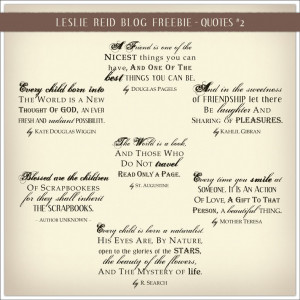 LESLIE REID BLOG FREEBIE - QUOTES #2
A Friend is one of the
NICEST things you can
have, AND ONE OF THE
best THINGS YOU CAN BE.
by DOUGLAS PAGELS
Every child born into
THE WORLD IS A NEW
THOUGHT OF GOD, AN EVER
FRESH AND radiant POSSIBILITY.
by KATE DOUGLAS WIGGIN
And in the sweetness
of FRIENDSHIP let there
BE laughter AND
SHARING of PLEASURES.
by KAHLIL GIBRAN
The World is a book,
AND THOSE WHO
DO NOT travel
READ ONLY A PAGE.
by ST. AUGUSTINE
Blessed are the children
OF SCRAPBOOKERS
for they shall inherit
THE SCRAPBOOKS.
- AUTHOR UNKNOWN -
Every time you smile at
SOMEONE, IT IS AN ACTION
OF LOVE, A GIFT TO THAT
PERSON, A beautiful THING.
by MOTHER TERESA
Every child is born a naturalist.
HIS EYES ARE, BY NATURE,
open to the glories of the STARS,
the beauty of the FLOWERS,
AND THE MYSTERY OF life.
by R. SEARCH